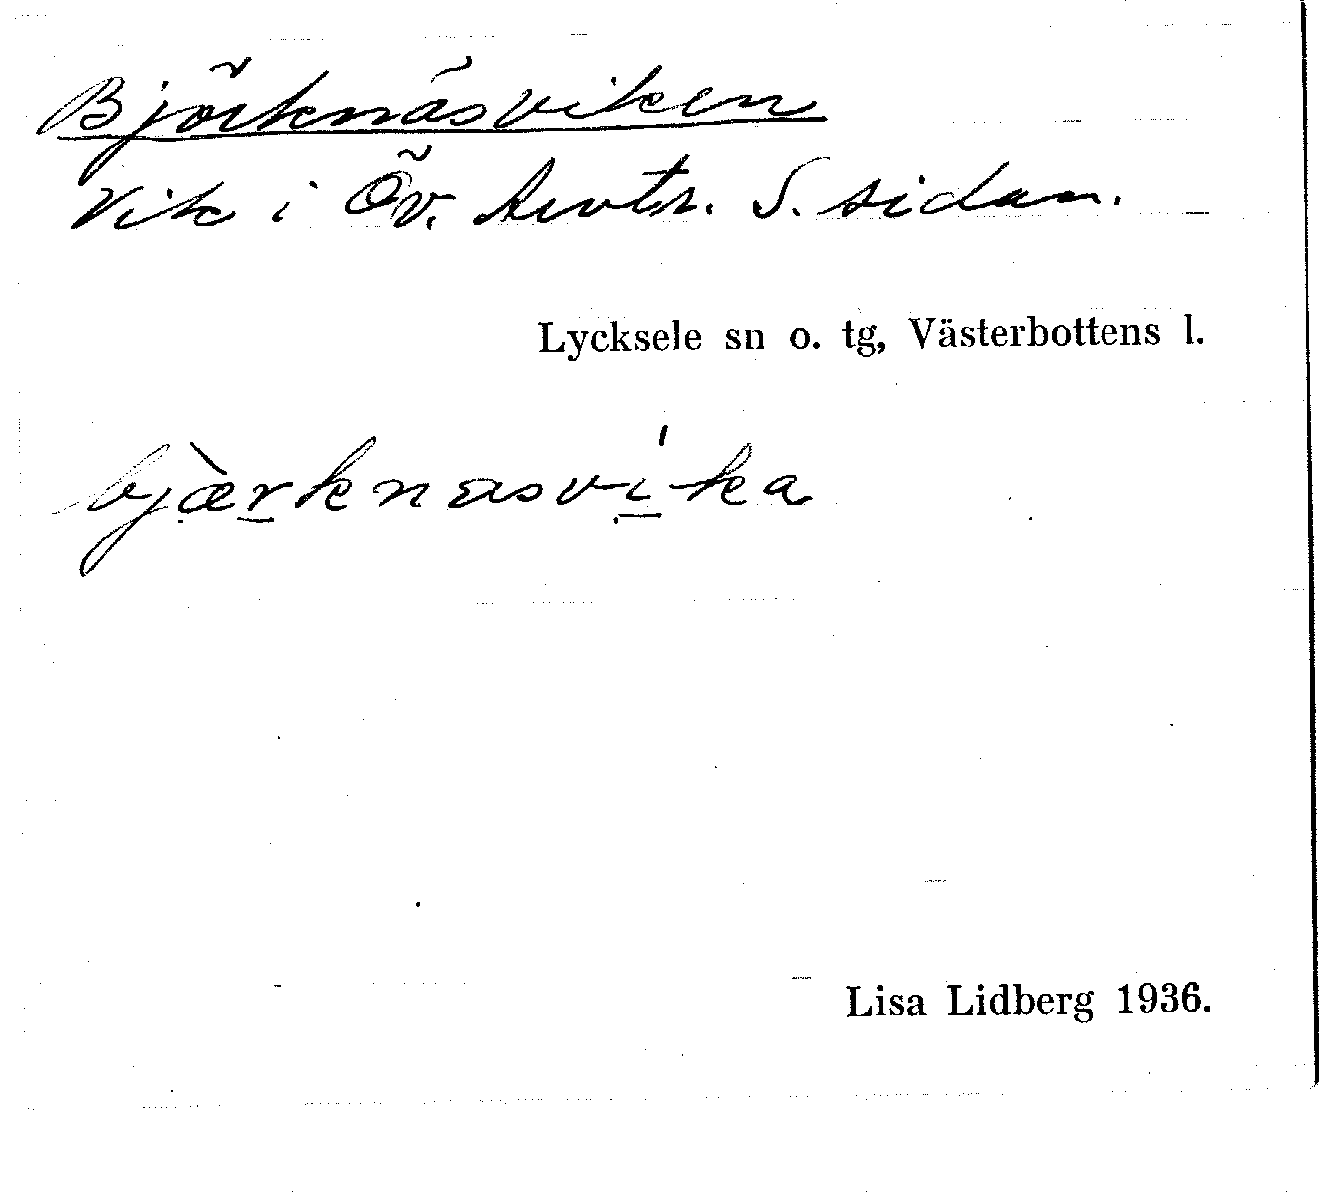 Björknäsviken
Vik i Öv. Arvtr. S. sidan.
Lycksele sn o. tg, Västerbottens l.
bjæ̀rknasvíka
Lisa Lidberg 1936.